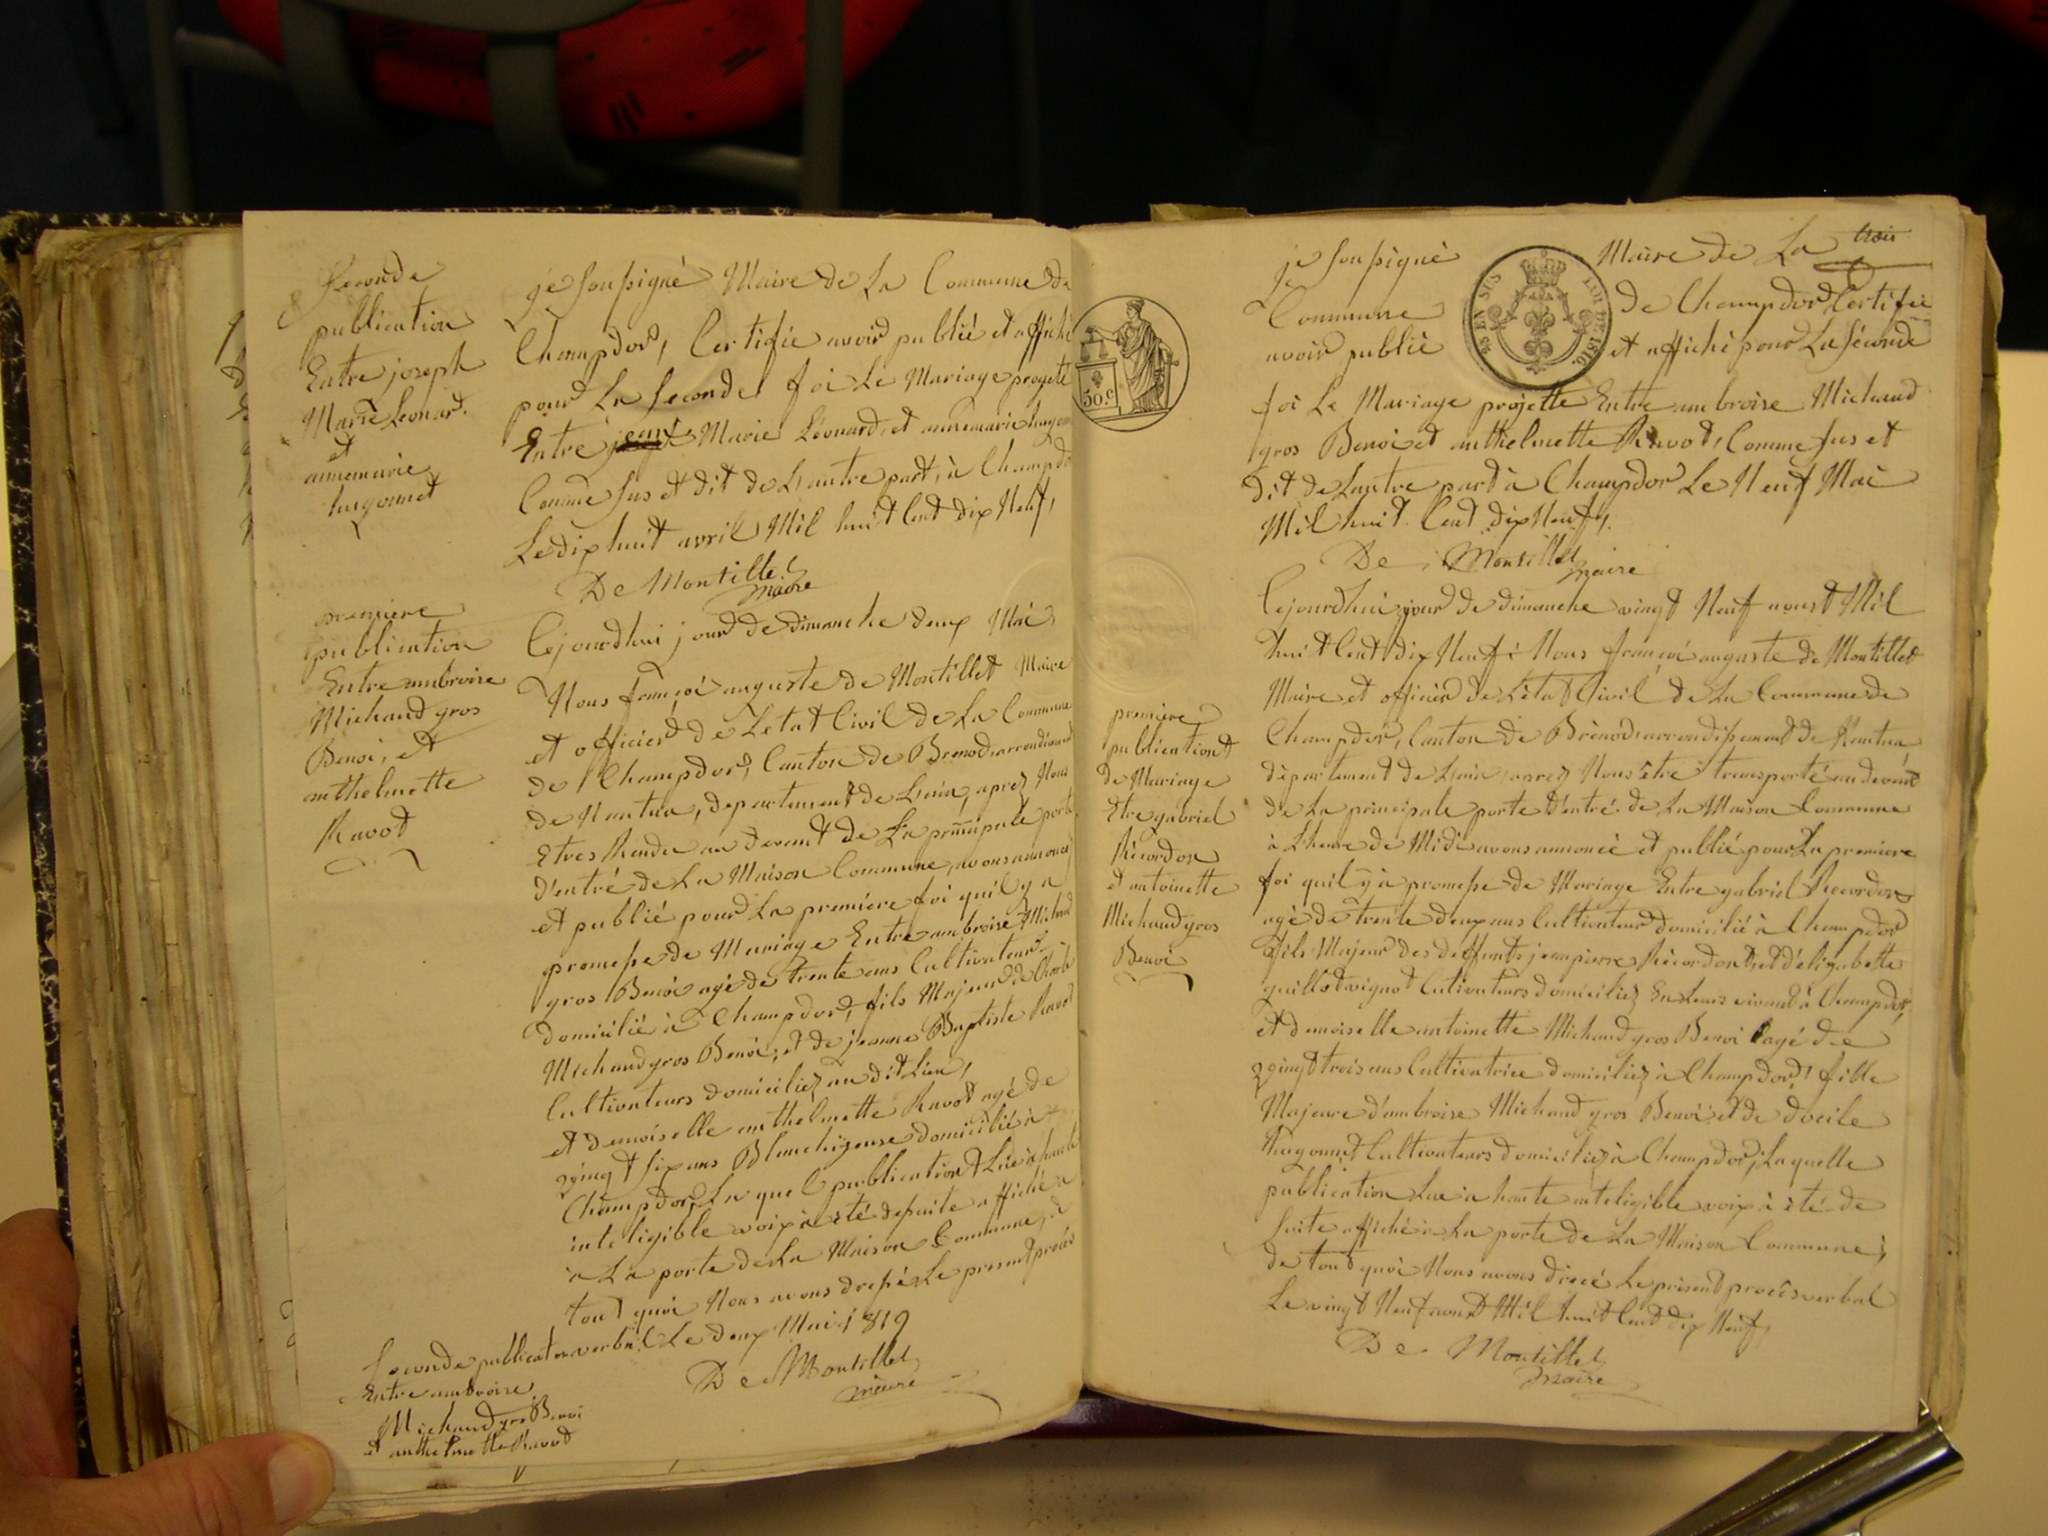 Seconde
publication
Entre joseph
Marie Leonard.
et
annemarie
hugonnet
je soussigné Maire de La Commune de
Champdor, Certifie avoir publié et affiché
pour La seconde foi Le Mariage progeté
Entre Marie Léonard, et annemarie hugonnet
Comme sus et dit de L'autre part, à Champdor
Le dix huit avril Mil huit Cent dix Neuf,
De Montillet
maire
premiere
publication
Entre ambroise
Michaud gros
Benoi, et
anthelmette
Ravot
Cejourdhui jour de dimanche deux Mai
Nous françoi auguste de Montillet Maire
et officier de Letat Civil de La Commune
de Champdor, Canton de Brenod arrondissement
de Nantua, departement de L'ain, aprez Nous
Etres Rendu au devant de La principale porte
D'entré de La Maison Commune, avons annoncé
et publié pour La premiere foi quil y a
promesse de Mariage Entre ambroise Michaud
gros Benoi agé de trente ans Cultivateur
domicilié à Champdor, fils Majeur de
Michaud gros Benoi, et de jeanne Baptiste Ravot
Cultivateurs domiciliez au dit Lieu,
et demoiselle anthelmette Ravot agé de
vingt six ans Blanchiseuse domicilié à
Champdor, La quel publication Lue à haute
inteligible voix à été desuite affiché a
a La porte de La Maison Commune, de
tout quoi Nous avons dressé Le present procés
verbal Le deux Mai 1819
De Montillet
maire
Seconde publication
Entre ambroise
Michaud gros Benoi
et anthelmette Ravot
trois
je soussigné Maire de La
Commune de Champdor Certifie
avoir publié et affiché pour La seconde
foi Le Mariage projetté Entre ambroise Michaud
gros Benoi et anthelmette Ravot, Comme sus et
dit de Lautre part à Champdor Le Neuf Mai
Mil huit Cent dix Neuf,
De Montillet
maire
50.c
EN SUS
LOI DE 1816.
premiere
publication
de Mariage
Etre gabriel
Récordon
et antoinette
Michaud gros
Benoi
Cejourdhui jour de dimanche vingt Neuf aoust Mil
huit Cent dix Neuf; Nous françoi auguste de Montillet
Maire et officier de L'état Civil de La Commune de
Champdor, Canton de Brénod arrondissement de Nantua
département de L'ain, aprez Nous être transporté au devant
de La principale porte d'entré de La Maison Commune
à L'heure de Midi avons annoncé et publié pour La premiere
foi quil y à promesse de Mariage Entre gabriel Recordon
agé de trente deux ans Cultivateur domicilié à Champdor
fils Majeur des deffunts jean pierre Récordon, et d'élizabette
guillot vignot Cultivateurs domiciliez En Leurs vivant à Champdor,
et demoiselle antoinette Michaud gros Benoi agé de
vingt trois ans Cultivatrice domiciliez à Champdor, fille
Majeure d'ambroise Michaud gros Benoi et de docile
hugonnet Cultivateurs domiciliez à Champdor, La quelle
publication Lue à haute inteligible voix à été de
suite affiché à La porte de La Maison Commune;
de tout quoi Nous avons dressé Le présent procès verbal
Le vingt Neuf aoust Mil huit Cent dix Neuf,
De Montillet
maire